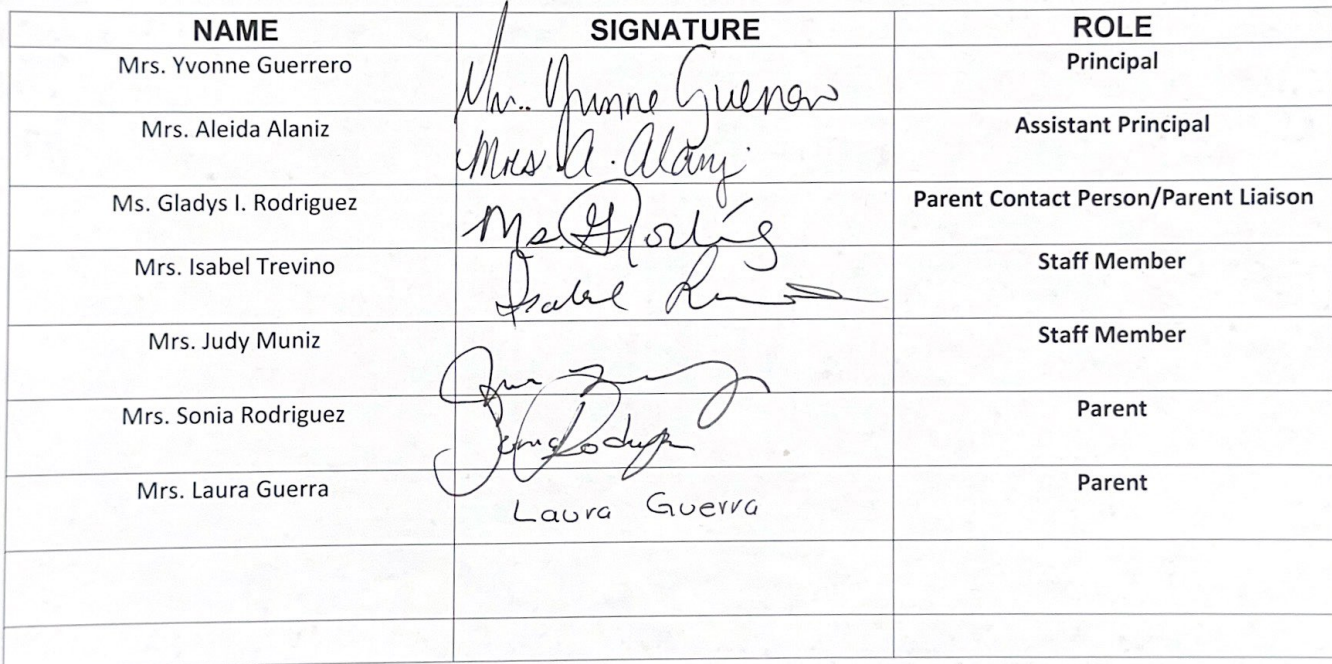 NAME SIGNATURE ROLE
Mrs. Yvonne Guerrero Mrs. Yvonne Guerrero Principal
Mrs. Aleida Alaniz Mrs A. Alaniz Assistant Principal
Ms. Gladys I. Rodriguez Ms. Parent Contact Person/Parent Liaison
Mrs. Isabel Trevino Isabel Staff Member
Mrs. Judy Muniz Staff Member
Mrs. Sonia Rodriguez Sonia Rodriguez Parent
Mrs. Laura Guerra Laura Guerra Parent